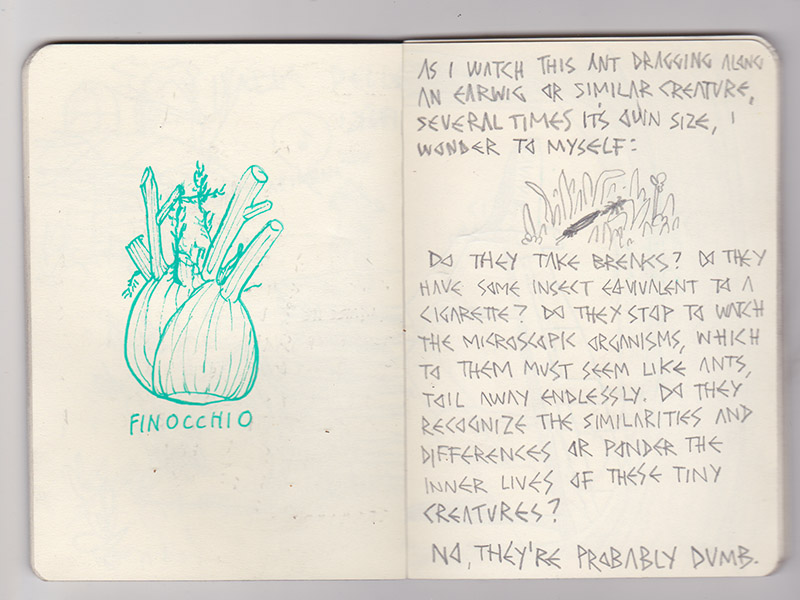 FINOCCHIO
AS I WATCH THIS ANT DRAGGING ALONG
AN EARWIG OR SIMILAR CREATURE,
SEVERAL TIMES IT'S OWN SIZE, I
WONDER TO MYSELF:
DO THEY TAKE BREAKS? DO THEY
HAVE SOME INSECT EQUIVALENT TO A
CIGARETTE? DO THEY STOP TO WATCH
THE MICROSCOPIC ORGANISMS, WHICH
TO THEM MUST SEEM LIKE ANTS,
TOIL AWAY ENDLESSLY. DO THEY
RECOGNIZE THE SIMILARITIES AND
DIFFERENCES OR PONDER THE
INNER LIVES OF THESE TINY
CREATURES?
NO, THEY'RE PROBABLY DUMB.